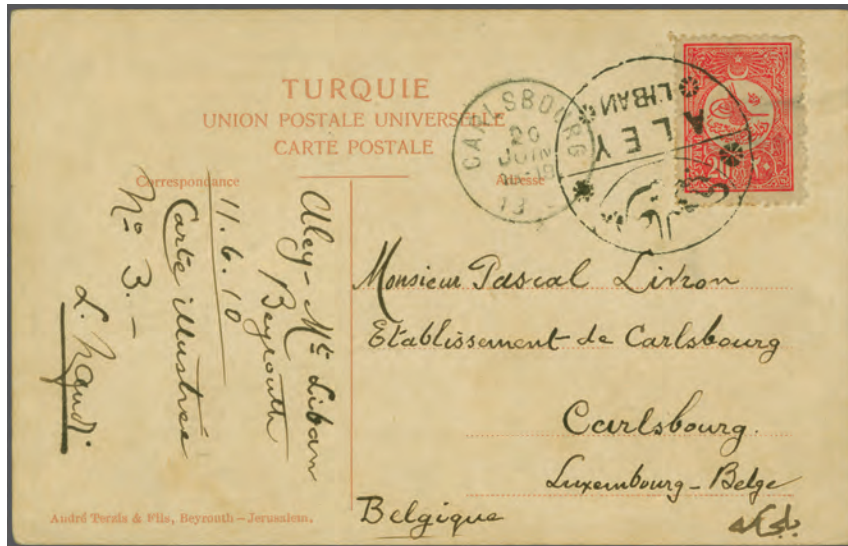 TURQUIE
UNION POSTALE UNIVERSELLE
CARTE POSTALE
Correspondance
Adresse
CARLSBOURG
20
JUIN
13
ALEY
LIBAN
20
٢٠
Aley - Mt Liban
Beyrouth
11.6.10
Carte illustrée
No 3.-
Monsieur Pascal Livron
Etablissement de Carlsbourg
Carlsbourg.
Luxembourg-Belge
Belgique
André Terzis & Fils, Beyrouth – Jerusalem.